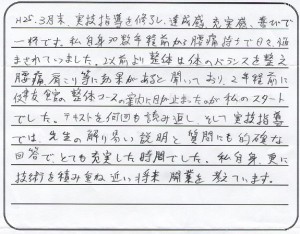 H25.3月末、実技指導を修了し、達成感、充実感、喜びで
一杯です。私自身30数年程前から腰痛持ちで日々、悩
まされていました。以前より整体は体のバランスを整え
腰痛、肩こり等に効果があると聞いており、2年程前に
整体コースの案内に目が止まったのが私のスタート
でした。テキストを何回も読み返し、そして実技指導
では、先生の解り易い説明と質問にも的確な
回答で、とても充実した時間でした。私自身、更に
技術を積み重ね近い将来開業を考えています。